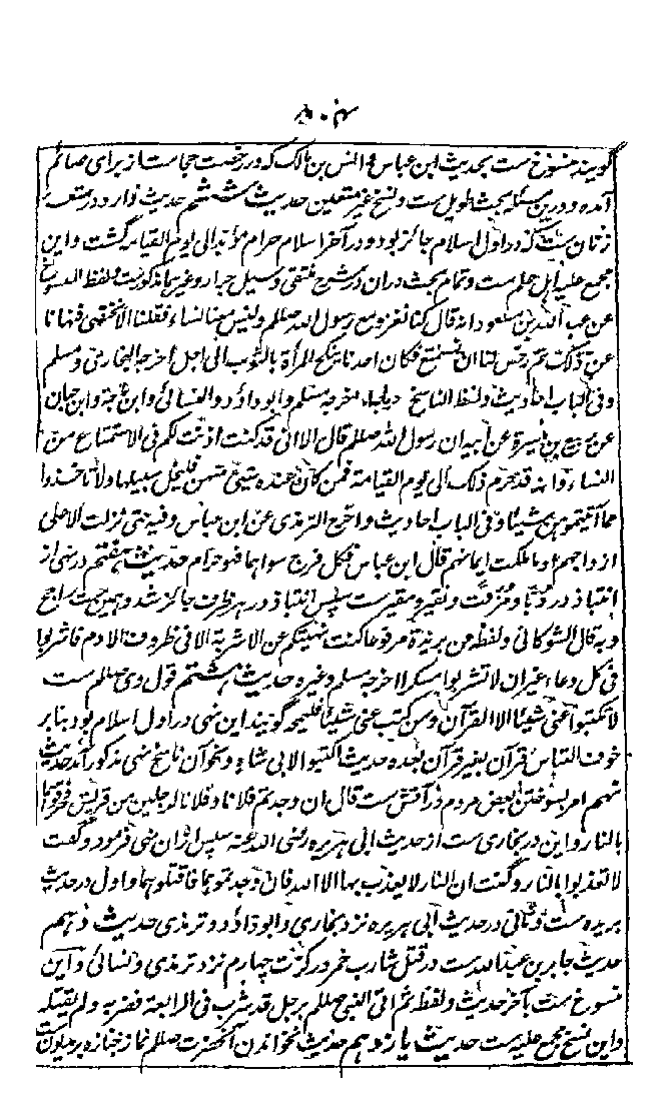 گویند منسوخ ست بحدیث ابن عباس و انس بن مالک که در رخصت حجامت از برای صائم
آمده و درین مسئله بحث طویل ست و نسخ غیر متعین حدیث ششم حدیث وارد در متعه
زنان ست که در اول اسلام جائز بود و در آخر اسلام حرام مؤبد الی یوم القیامه گشت و این
مجمع علیه اهل علم ست و تمام بحث دران در شرح منتقی و سیل جرار و غیرها مذکورست و لفظ المنسوخ
عن عبد الله بن مسعود انه قال کنا نغزو مع رسول الله صللم ولیس معنا نساء فقلنا الا نختصی فنهانا
عن ذلک ثم رخص لنا ان نستمتع فکان احدنا ینکح المرأة بالثوب الی اجل اخرجه البخاری و مسلم
وفی الباب احادیث و لفظ الناسخ اخرجه مسلم و ابو داؤد و النسائی و ابن ماجة و ابن حبان
عن ربیع بن سبرة عن ابیه ان رسول الله صللم قال الا انی قد کنت اذنت لکم فی الاستمتاع من
النساء و انه قد حرم ذلک الی یوم القیامة فمن کان عنده شیئ منهن فلیخل سبیلها ولا تاخذوا
مما آتیتموهن شیئا و فی الباب احادیث و اخرج الترمذی عن ابن عباس و فیه حتی نزلت الا علی
ازواجهم او ما ملکت ایمانهم قال ابن عباس فکل فرج سواهما فهو حرام حدیث هفتم در نهی از
انتباذ در دبا و مزفت و نقیر و مقیر ست سپس انتباذ در هر ظرف جائز شد و همین ست راجح
و به قال الشوکانی و لفظه عن بریدة مرفوعا کنت نهیتکم عن الاشربة الا فی ظروف الادم فاشربوا
فی کل وعاء غیر ان لا تشربوا مسکرا اخرجه مسلم و غیره حدیث هشتم قول وی صللم ست
لا تکتبوا عنی شیئا الا القرآن و من کتب عنی شیئا فلیمحه گویند این نهی در اول اسلام بود بنا بر
خوف التباس قرآن بغیر قرآن بعده حدیث اکتبوا لابی شاه و نحو آن ناسخ نهی مذکور آمد حدیث
نهم امر بسوختن بعض مردم در آتش ست قال ان وجدتم فلانا و فلانا لرجلین من قریش فاحرقوهما
بالنار و این در بخاری ست از حدیث ابی هریره رضی الله عنه سپس ازان نهی فرمود و گفت
لا تعذبوا بالنار و گفت ان النار لا یعذب بها الا الله فان وجدتموهما فاقتلوهما و اول در حدیث
بریره ست و ثانی در حدیث ابی هریره نزد بخاری و ابو داؤد و ترمذی حدیث دهم
حدیث جابر بن عبد الله ست در قتل شارب خمر در کرت چهارم نزد ترمذی و نسائی و این
منسوخ ست بآخر حدیث و لفظه ثم اتی النبی صللم برجل قد شرب فی الرابعة فضربه و لم یقتله
و این نسخ مجمع علیه ست حدیث یازدهم حدیث نخواندن آنحضرت صللم نماز جنازه بر مدیون ست